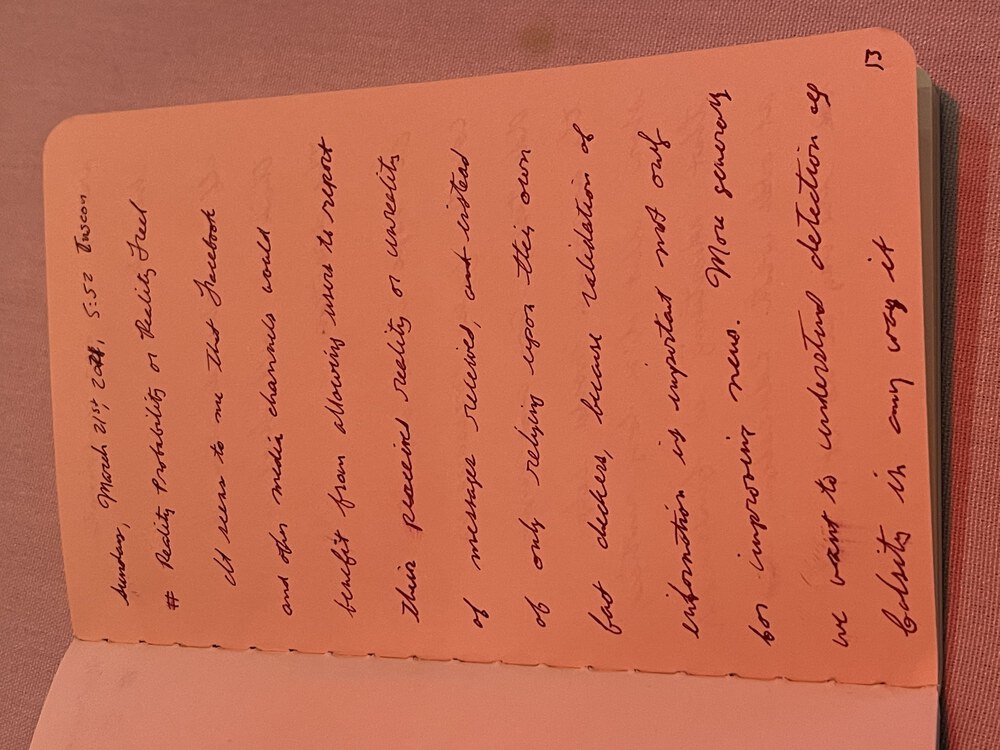 Sunday, March 21st, 5:52 Tuscon
# Reality Probability or Reality Feel
It seems to me that Facebook
and other media channels would
benefit from allowing users to report
their perceived reality or unreality
of messages received, instead
of only relying upon their own
fact checkers, because validation of
information is important not only
for improving news. More generally
we want to understand detection of
falsity in any way it
13